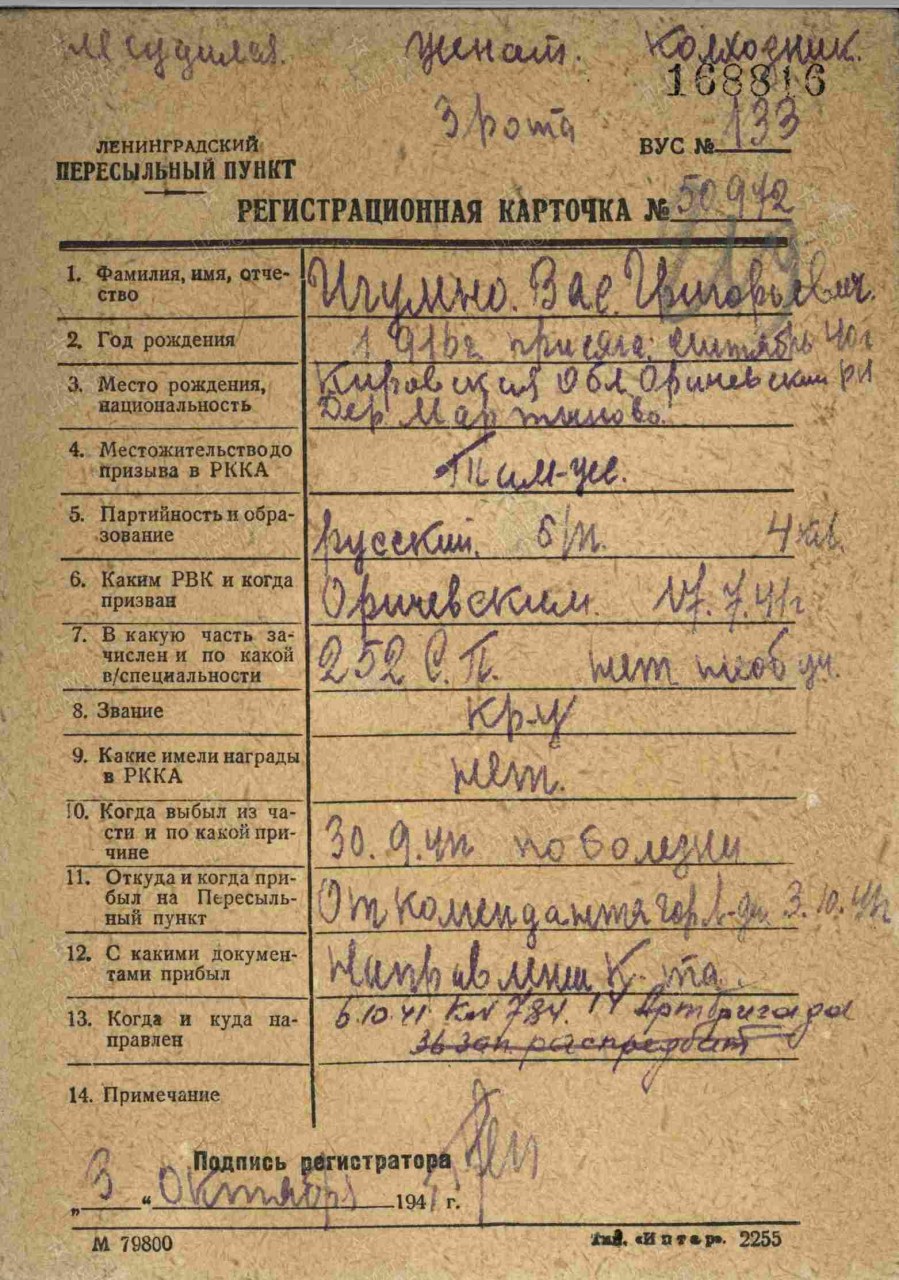 Не судился. женат. Колхозник.
168816
3 рота
ВУС № 133
ЛЕНИНГРАДСКИЙ
ПЕРЕСЫЛЬНЫЙ ПУНКТ
РЕГИСТРАЦИОННАЯ КАРТОЧКА № 50972
219
1. Фамилия, имя, отче-
ство
Игумно. Вас. Григорьевич.
2. Год рождения
1916г присяга сентябрь 40г
3. Место рождения,
национальность
Кировская Обл Оричевский рн
Дер Мартыново.
4. Местожительство до
призыва в РККА
Там-же.
5. Партийность и обра-
зование
русский. б/п. 4 кл.
6. Каким РВК и когда
призван
Оричевским. 17.7.41г
7. В какую часть за-
числен и по какой
в/специальности
252 С.П. нет необуч.
8. Звание
кр-ц
9. Какие имели награды
в РККА
нет.
10. Когда выбыл из ча-
сти и по какой при-
чине
30.9.41г по болезни
11. Откуда и когда при-
был на Пересыль-
ный пункт
От коменданта гор Л-да 3.10.41г
12. С какими докумен-
тами прибыл
Направлении К-та.
13. Когда и куда на-
правлен
6.10.41 Кл 784. 14 Артбригада
36 зап распредбат
14. Примечание
Подпись регистратора
„3“ Октября 1941 г.
М 79800
Тип. «Интар». 2255